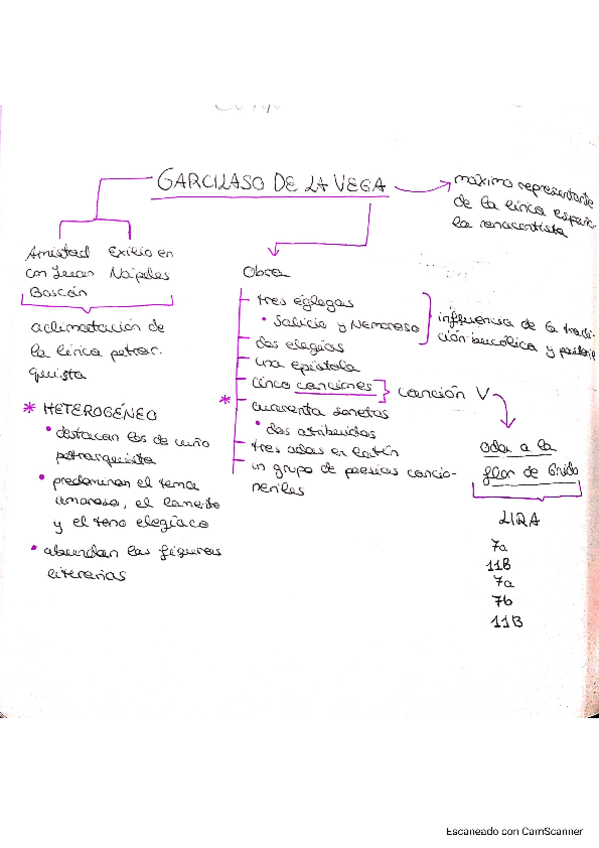 GARCILASO DE LA VEGA
máximo representante
de la lírica españo-
la renacentista
Amistad Exilio en
con Juan Nápoles
Boscán
aclimatación de
la lírica petrar-
quista
* HETEROGÉNEO
• destacan los de cuño
petrarquista
• predominan el tema
amoroso, el lamento
y el tono elegíaco
• abundan las figuras
literarias
Obra
tres églogas
• Salicio y Nemoroso
influencia de la tradi-
ción bucólica y pastoril
dos elegías
una epístola
cinco canciones
canción V
* cuarenta sonetos
• dos atribuidos
tres odas en latín
un grupo de poesías cancio-
neriles
oda a la
flor de Gnido
LIRA
7a
11B
7a
7b
11B
Escaneado con CamScanner